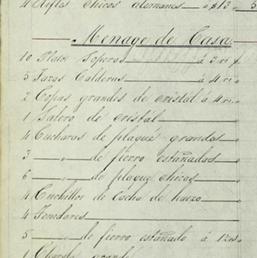 4 Chicos alemanes á $ 13
Menage de Casa
10 Platos Soperos á 2 ri
5 Tazas Calderas á 4 ri
2 Copas grandes de cristal á 4 ri
1 Salero de cristal
4 Cucharas de plaqué grandes
3 de fierro estañadas
6 de plaqué chicas
4 Cuchillos de Cacho de hueso
4 Tenedores
5 de fierro estañado á
1 grande